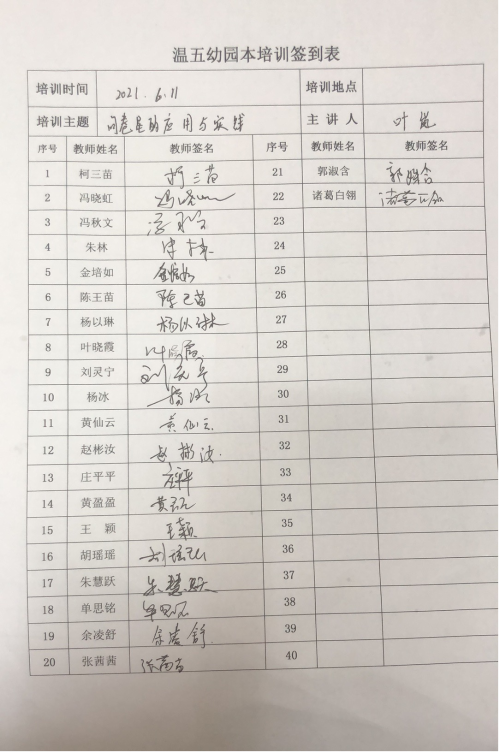 温五幼园本培训签到表
培训时间 2021.6.11 培训地点
培训主题 问卷星的应用与实践 主讲人 叶
序号 教师姓名 教师签名 序号 教师姓名 教师签名
1 柯三苗 柯三苗 21 郭淑含 郭淑含
2 冯晓虹 冯晓 22 诸葛白翎 诸葛白翎
3 冯秋文 23
4 朱林 朱林 24
5 金培如 金培如 25
6 陈王苗 陈王苗 26
7 杨以琳 杨以琳 27
8 叶晓霞 叶晓霞 28
9 刘灵宁 刘灵宁 29
10 杨冰 杨冰 30
11 黄仙云 黄仙云 31
12 赵彬汝 赵彬汝 32
13 庄平平 庄平平 33
14 黄盈盈 黄盈盈 34
15 王颖 王颖 35
16 胡瑶瑶 胡瑶瑶 36
17 朱慧跃 朱慧跃 37
18 单思铭 单思铭 38
19 余凌舒 余凌舒 39
20 张茜茜 张茜茜 40